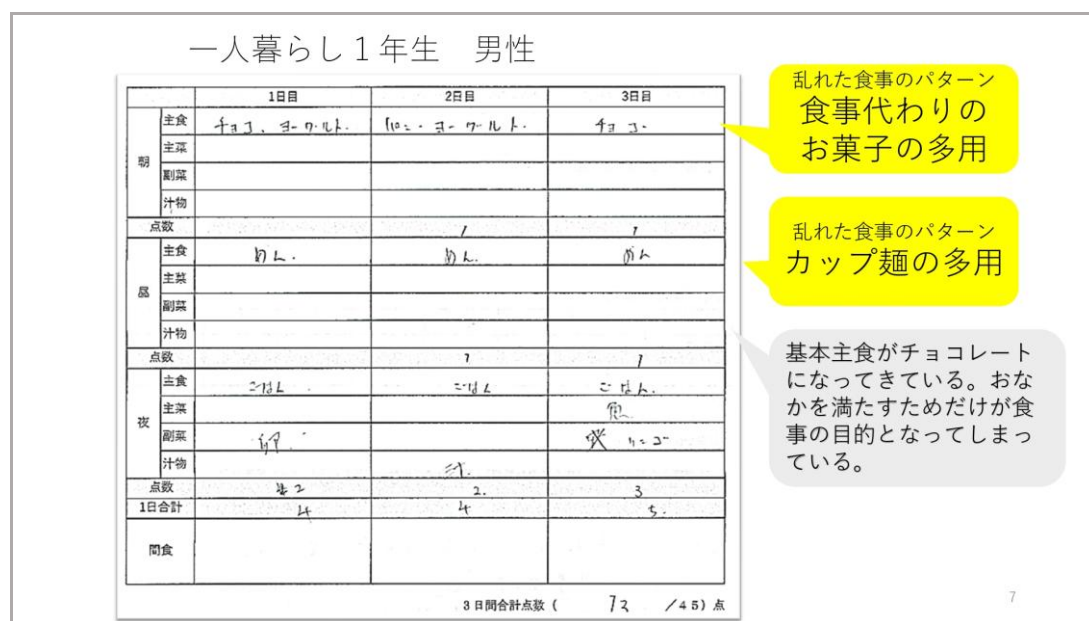 一人暮らし１年生　男性
1日目 2日目 3日目
朝
主食 チョコ、ヨーグルト. ヨーグルト. チョコ.
主菜
副菜
汁物
点数 1 1
昼
主食 めん. めん. めん
主菜
副菜
汁物
点数 1 1
夜
主食 ごはん. ごはん ごはん.
主菜 魚
副菜 卵.
汁物 汁.
点数 2 2. 3
1日合計 4 4 5.
間食
3日間合計点数 ( /45) 点
乱れた食事のパターン
食事代わりの
お菓子の多用
乱れた食事のパターン
カップ麺の多用
基本主食がチョコレート
になってきている。おな
かを満たすためだけが食
事の目的となってしまっ
ている。
7